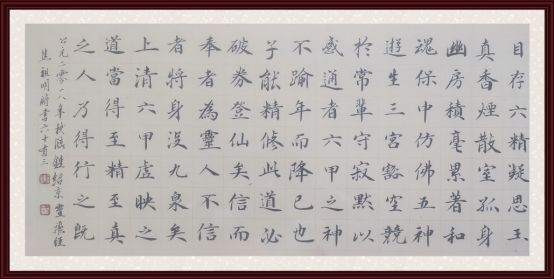 目存六精凝思玉
真香煙散室孤身
幽房積毫累著和
魂保中仿佛五神
遊生三宮豁空競
於常輩守寂默以
感通者六甲之神
不踰年而降己也
子能精修此道必
破券登仙矣信而
奉者為靈人不信
者將身沒九泉矣
上清六甲虛映之
道當得至精至真
之人乃得行之既
公元二零一八年秋臨鍾紹京靈飛經
祖明時書六十有三